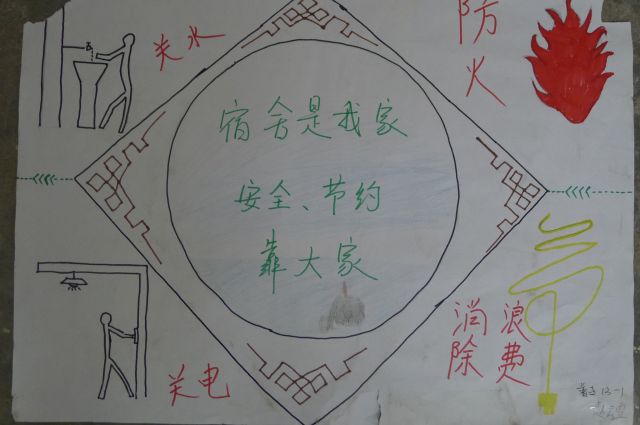 关水
防火
宿舍是我家
安全、节约
靠大家
关电
消除
浪费
13-1